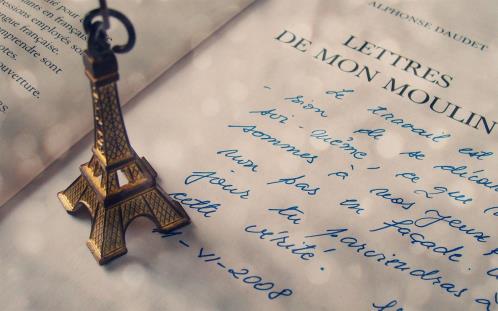 pour
expressions employés son
langue française.
comprendre sont
notes.
ouverture.
ALPHONSE DAUDET
LETTRES
DE MON MOULIN
- Le travail est
sion de se décou
soi-même, ce que
sommes à nos yeux
non pas en façade.
jour tu parviendras à
cette vérité.
11-VI-2008